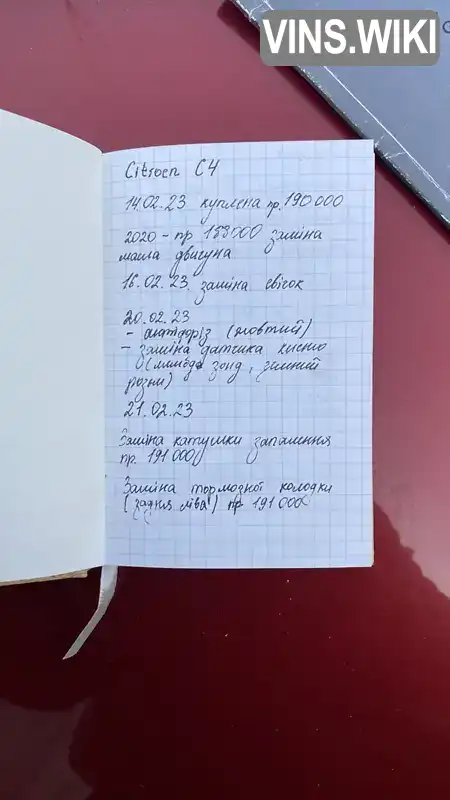 VINS.WIKI
Citroen C4
14.02.23 куплена пр. 190 000
2020 - пр заміна
масла двигуна
16.02.23 заміна свічок
20.02.23
- антифріз (жовтий)
- заміна датчика кисню
зонд,
21.02.23
Заміна катушки запалення
пр. 191 000
Заміна тормозної колодки
(задня ліва) пр 191 000